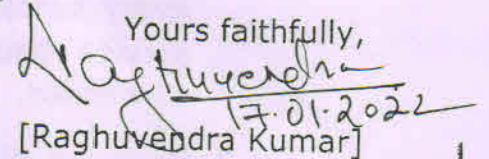 Yours faithfully,
Raghuvendra
17.01.2022
[Raghuvendra Kumar]